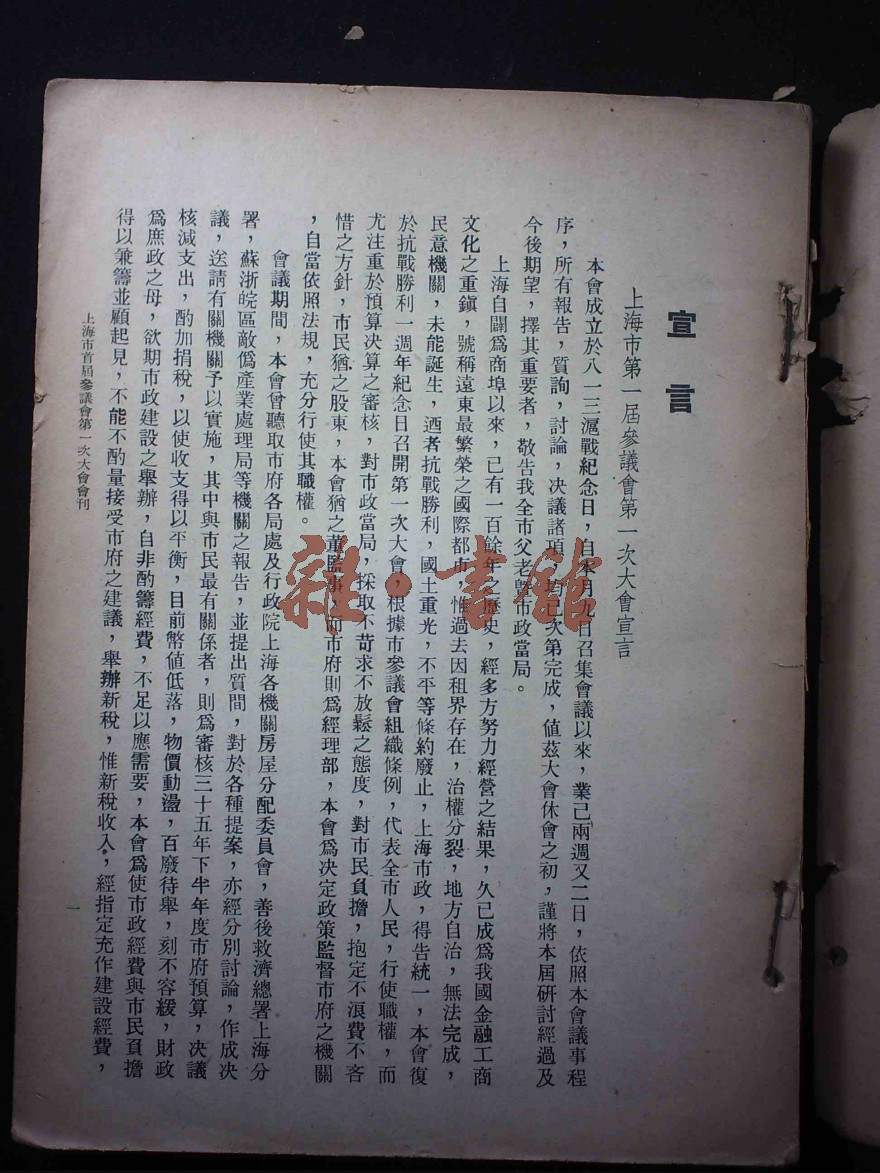 宣言
上海市第一屆參議會第一次大會宣言
本會成立於八一三滬戰紀念日，自本月九日召集會議以來，業已兩週又二日，依照本會議事程
序，所有報告，質詢，討論，決議諸項，均已次第完成，値茲大會休會之初，謹將本屆硏討經過及
今後期望，擇其重要者，敬告我全市父老曁市政當局。
上海自闢爲商埠以來，已有一百餘年之歷史，經多方努力經營之結果，久已成爲我國金融工商
文化之重鎭，號稱遠東最繁榮之國際都市，惟過去因租界存在，治權分裂，地方自治，無法完成，
民意機關，未能誕生，迺者抗戰勝利，國土重光，不平等條約廢止，上海市政，得告統一，本會復
於抗戰勝利一週年紀念日召開第一次大會，根據市參議會組織條例，代表全市人民，行使職權，而
尤注重於預算決算之審核，對市政當局，採取不苛求不放鬆之態度，對市民負擔，抱定不浪費不吝
惜之方針，市民猶之股東，本會猶之董監事，而市府則爲經理部，本會爲決定政策監督市府之機關
，自當依照法規，充分行使其職權。
會議期間，本會曾聽取市府各局處及行政院上海各機關房屋分配委員會，善後救濟總署上海分
署，蘇浙皖區敵僞產業處理局等機關之報告，並提出質問，對於各種提案，亦經分別討論，作成决
議，送請有關機關予以實施，其中與市民最有關係者，則爲審核三十五年下半年度市府預算，决議
核減支出，酌加捐稅，以使收支得以平衡，目前幣値低落，物價動盪，百廢待舉，刻不容緩，財政
爲庶政之母，欲期市政建設之舉辦，自非酌籌經費，不足以應需要，本會爲使市政經費與市民負擔
得以兼籌並顧起見，不能不酌量接受市府之建議，舉辦新稅，惟新稅收入，經指定充作建設經費，
上海市首屆參議會第一次大會會刊
一
雜·書館